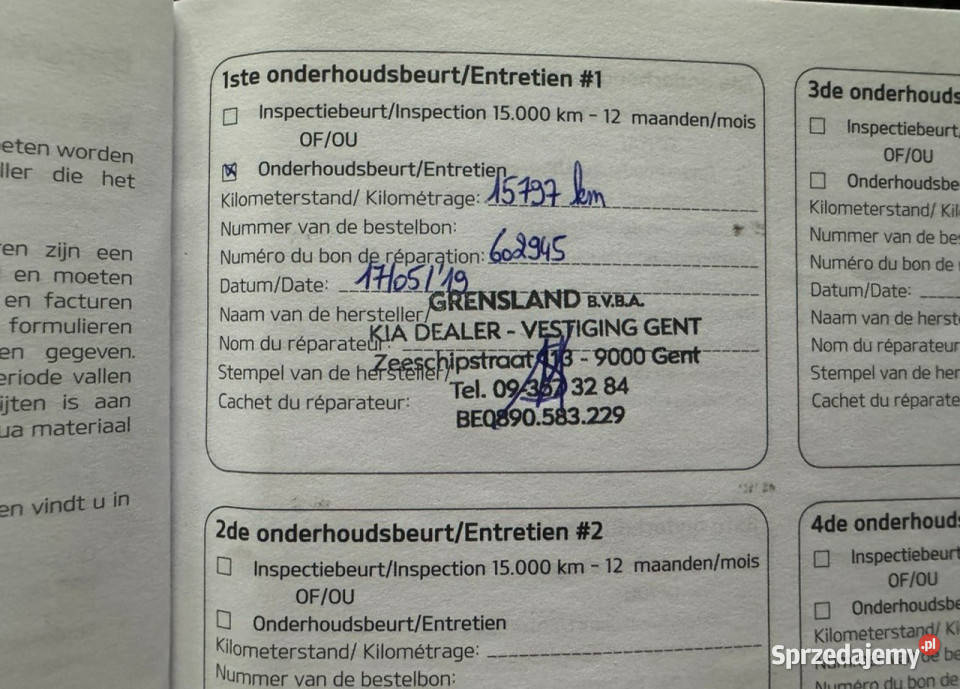 eten worden
ller die het
ren zijn een
en moeten
en facturen
formulieren
en gegeven.
eriode vallen
ijten is aan
ua materiaal
en vindt u in
1ste onderhoudsbeurt/Entretien #1
Inspectiebeurt/Inspection 15.000 km - 12 maanden/mois
OF/OU
Onderhoudsbeurt/Entretien
Kilometerstand/ Kilométrage: 15797 km
Nummer van de bestelbon:
Numéro du bon de réparation: 602945
Datum/Date: 17/05/'19
Naam van de hersteller/
GRENSLAND B.V.B.A.
Nom du réparateur:
KIA DEALER - VESTIGING GENT
Stempel van de hersteller/
Zeeschipstraat 113 - 9000 Gent
Cachet du réparateur:
Tel. 09-367 32 84
BE0890.583.229
2de onderhoudsbeurt/Entretien #2
Inspectiebeurt/Inspection 15.000 km - 12 maanden/mois
OF/OU
Onderhoudsbeurt/Entretien
Kilometerstand/ Kilométrage:
Nummer van de bestelbon:
3de onderhouds
Inspectiebeurt/
OF/OU
Onderhoudsbe
Kilometerstand/ Kil
Nummer van de bes
Numéro du bon de
Datum/Date:
Naam van de herst
Nom du réparateur
Stempel van de her
Cachet du réparate
4de onderhouds
Inspectiebeurt
OF/OU
Onderhoudsbe
Kilometerstand/ Ki
Nummer van de be
Numéro du bon de
Sprzedajemy.pl